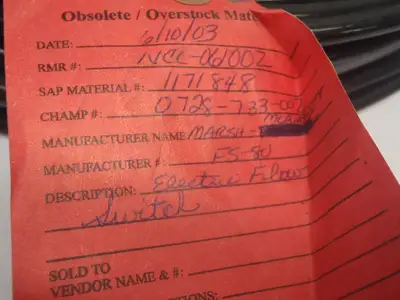 Obsolete / Overstock Mat
DATE: 6/10/03
RMR #: NCR-061002
SAP MATERIAL #: 1171848
CHAMP #: 0728-733-
MANUFACTURER NAME MARSH-
MANUFACTURER #: FS-80
DESCRIPTION: Electric Flow
Switch
SOLD TO
VENDOR NAME & #: